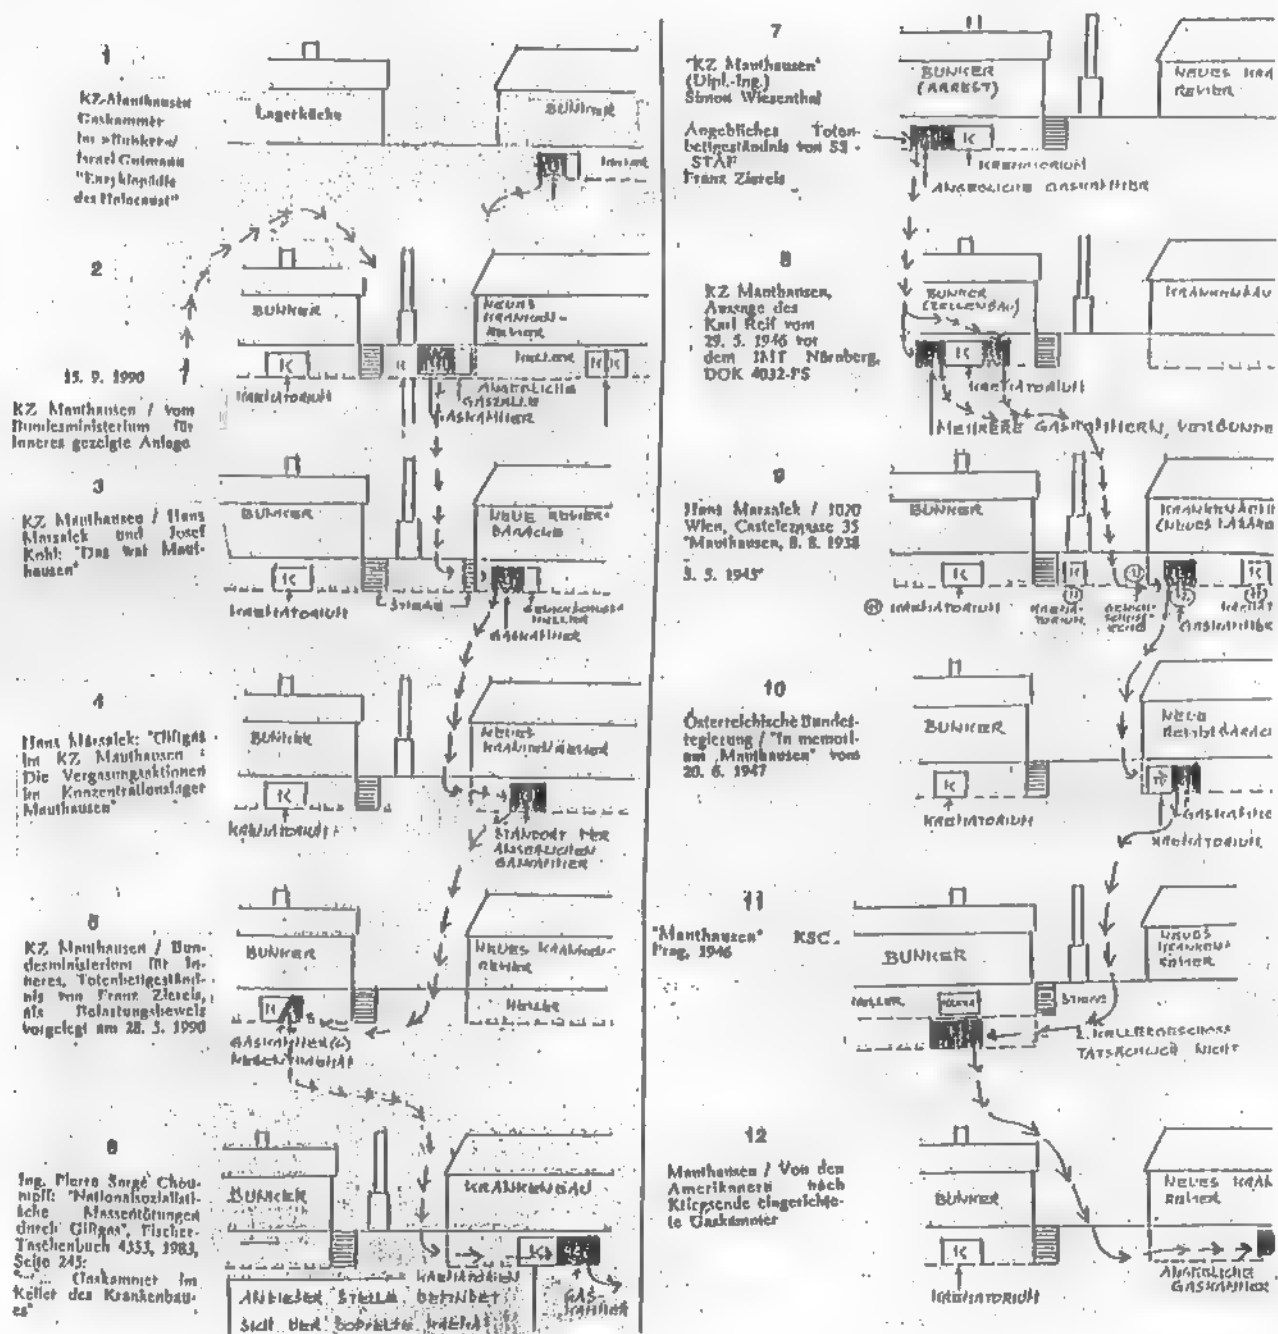 1
KZ-Mauthausen
Gaskammer
im »Bunker«/
Israel Gutmann
"Enzyklopädie
des Holocaust"
Lagerküche
BUNKER
2
15. 9. 1990
KZ Mauthausen / vom
Bundesministerium für
Inneres gezeigte Anlage
BUNKER
NEUES
KRANKEN-
REVIER
K
K
KREMATORIUM
ANGEBLICHE
GASZELLE
GASKAMMER
3
KZ Mauthausen / Hans
Marsalek und Josef
Kohl: "Das war Maut-
hausen"
BUNKER
NEUE REVIER-
BARACKE
K
KREMATORIUM
STIEGE
GASKAMMER
4
Hans Marsalek: "Giftgas
im KZ Mauthausen
Die Vergasungsaktionen
im Konzentrationslager
Mauthausen"
BUNKER
NEUES
KRANKENREVIER
K
KREMATORIUM
STANDORT DER
ANGEBLICHEN
GASKAMMER
5
KZ Mauthausen / Bun-
desministerium für In-
neres, Totenbettgeständ-
nis von Franz Ziereis,
als Belastungsbeweis
vorgelegt am 28. 5. 1990
BUNKER
NEUES KRANKEN-
REVIER
K
KELLER
GASKAMMER(N)
NEBEN
6
Ing. Pierre Serge Chou-
moff: "Nationalsozialisti-
sche Massentötungen
durch Giftgas", Fischer-
Taschenbuch 4353, 1983,
Seite 245:
"... Gaskammer im
Keller des Krankenbau-
es"
BUNKER
KRANKENBAU
K
AN DIESER STELLE BEFINDET
SICH DER DOPPELTE
GAS-
KAMMER
7
"KZ Mauthausen"
(Dipl.-Ing.)
Simon Wiesenthal
Angebliches Toten-
bettgeständnis von SS -
STAF
Franz Ziereis
BUNKER
(ARREST)
NEUES KRAN
REVIER
K
KREMATORIUM
ANGEBLICHE GASKAMMER
8
KZ Mauthausen,
Aussage des
Karl Reif vom
29. 5. 1946 vor
dem IMT Nürnberg,
DOK 4032-PS
BUNKER
(ZELLENBAU)
KRANKENBAU
K
KREMATORIUM
MEHRERE GASKAMMERN, VERBUNDE
9
Hans Marsalek / 1020
Wien, Castellezgasse 35
"Mauthausen, 8. 8. 1938
5. 5. 1945"
BUNKER
KRANKENABTEI
(NEUES LAZARE
K
K
K
KREMATORIUM
KREMA-
TORIUM
GASKAMMER
10
Österreichische Bundes-
regierung / "In memori-
am „Mauthausen" vom
20. 6. 1947
BUNKER
NEUE
REVIERBARACKE
K
KREMATORIUM
GASKAMMER
KREMATORIUM
11
"Mauthausen" KSC -
Prag, 1946
BUNKER
NEUES
KRANKEN
REVIER
KELLER
STIEGE
2. KELLERGESCHOSS
TATSÄCHLICH NICHT
12
Mauthausen / Von den
Amerikanern nach
Kriegsende eingerichte-
te Gaskammer
BUNKER
NEUES KRAN
REVIER
K
KREMATORIUM
ANGEBLICHE
GASKAMMER